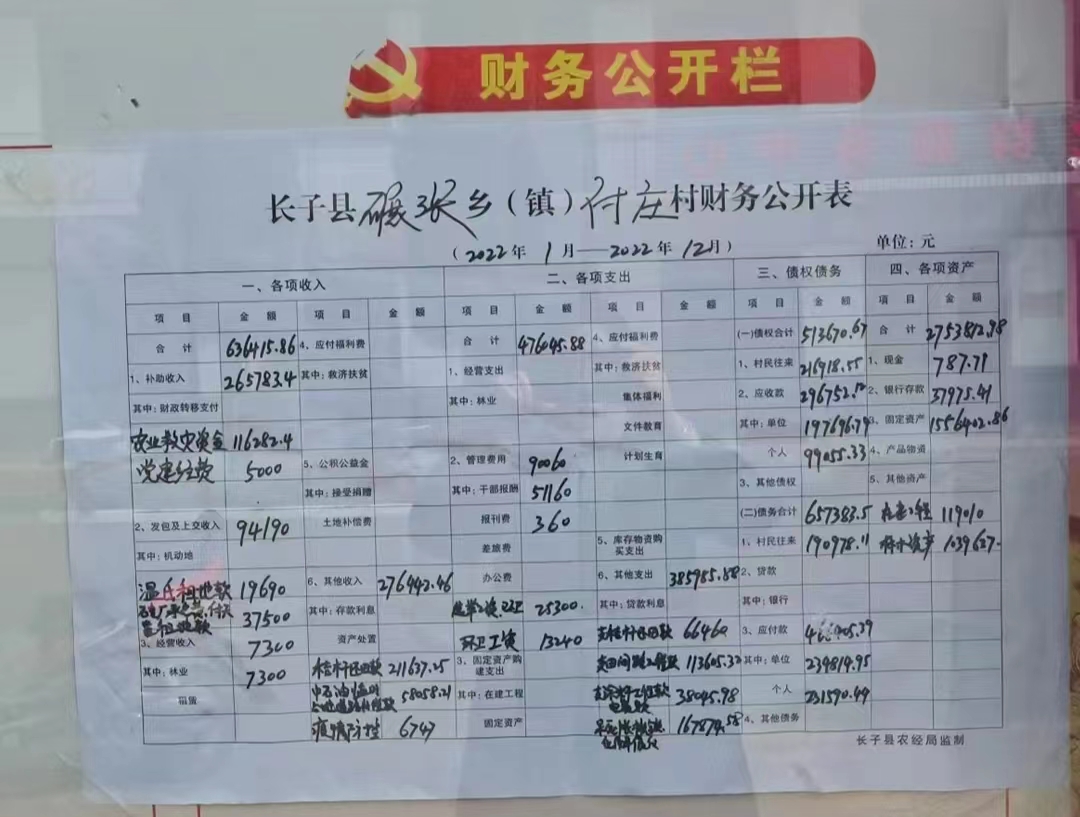 财务公开栏
长子县碾张乡（镇）付庄村财务公开表
（2022年1月——2022年12月）
单位：元
一、各项收入 二、各项支出 三、债权债务 四、各项资产
项目 金额 项目 金额 项目 金额 项目 金额 项目 金额 项目 金额
合计 636415.86 4、应付福利费 合计 476045.88 4、应付福利费 (一)债权合计 513670.67 合计 2753812.98
1、补助收入 265783.4 其中：救济扶贫 1、经营支出 其中：救济扶贫 1、村民往来 216918.55 1、现金 787.71
其中：财政转移支付 其中：林业 集体福利 2、应收款 296752.12 2、银行存款 37975.41
农业救灾资金 116282.4 文件教育 其中：单位 197696.79 3、固定资产 1556402.86
党建经费 5000 5、公积公益金 2、管理费用 90060 计划生育 个人 99055.33 4、产品物资
其中：接受捐赠 其中：干部报酬 51160 3、其他债权 5、其他资产
2、发包及上交收入 94190 土地补偿费 报刊费 360 (二)债务合计 657383.5 在建工程 119010
其中：机动地 差旅费 5、库存物资购买支出 1、村民往来 190978.11 1039627.
温氏租地款 19690 6、其他收入 276442.46 办公费 6、其他支出 385985.88 2、贷款
37500 其中：存款利息 25300. 其中：贷款利息 其中：银行
3、经营收入 7300 资产处置 环卫工资 13240 66460 3、应付款 39
其中：林业 7300 211637.25 3、固定资产购建支出 113605.32 其中：单位 234814.95
租赁 中石油 58058.21 其中：在建工程 38045.98 个人 231590.44
疫情防控 6747 固定资产 167874.58 4、其他债务
长子县农经局监制